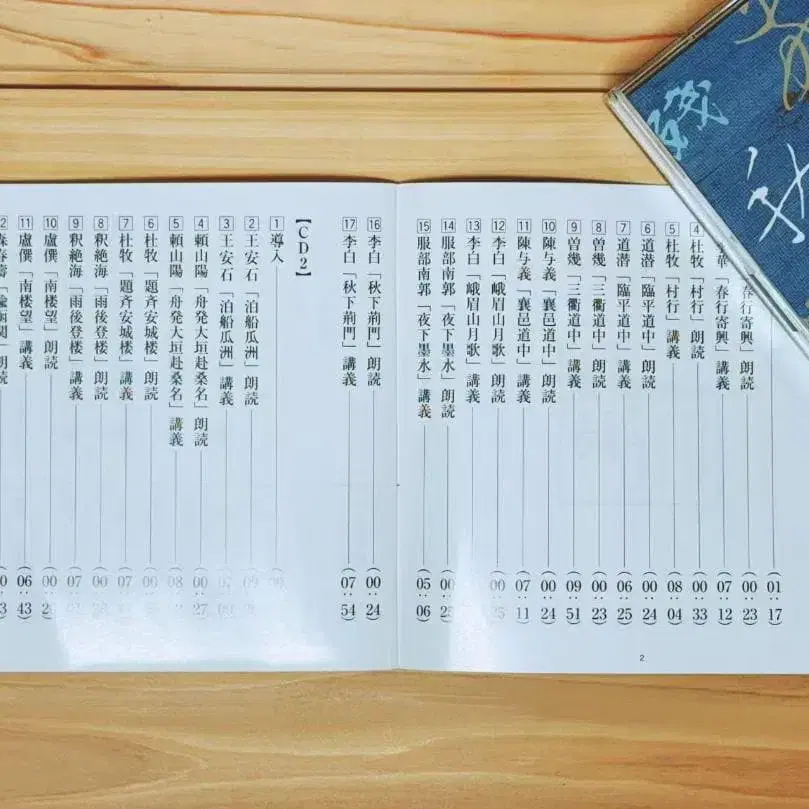 (01:17)
春行寄興」朗読 (00:23)
華「春行寄興」講義 (07:12)
4 杜牧「村行」朗読 (00:33)
5 杜牧「村行」講義 (08:04)
6 道潜「臨平道中」朗読 (00:24)
7 道潜「臨平道中」講義 (06:25)
8 曽幾「三衢道中」朗読 (00:23)
9 曽幾「三衢道中」講義 (09:51)
10 陳与義「襄邑道中」朗読 (00:24)
11 陳与義「襄邑道中」講義 (07:11)
12 李白「峨眉山月歌」朗読 (00:25)
13 李白「峨眉山月歌」講義
14 服部南郭「夜下墨水」朗読 (00:25)
15 服部南郭「夜下墨水」講義 (05:06)
16 李白「秋下荊門」朗読 (00:24)
17 李白「秋下荊門」講義 (07:54)
【CD2】
1 導入
2 王安石「泊船瓜洲」朗読
3 王安石「泊船瓜洲」講義
4 頼山陽「舟発大垣赴桑名」朗読 (00:27)
5 頼山陽「舟発大垣赴桑名」講義
6 杜牧「題斉安城楼」朗読
7 杜牧「題斉安城楼」講義
8 釈絶海「雨後登楼」朗読
9 釈絶海「雨後登楼」講義
10 盧僎「南楼望」朗読
11 盧僎「南楼望」講義 (06:43)
2